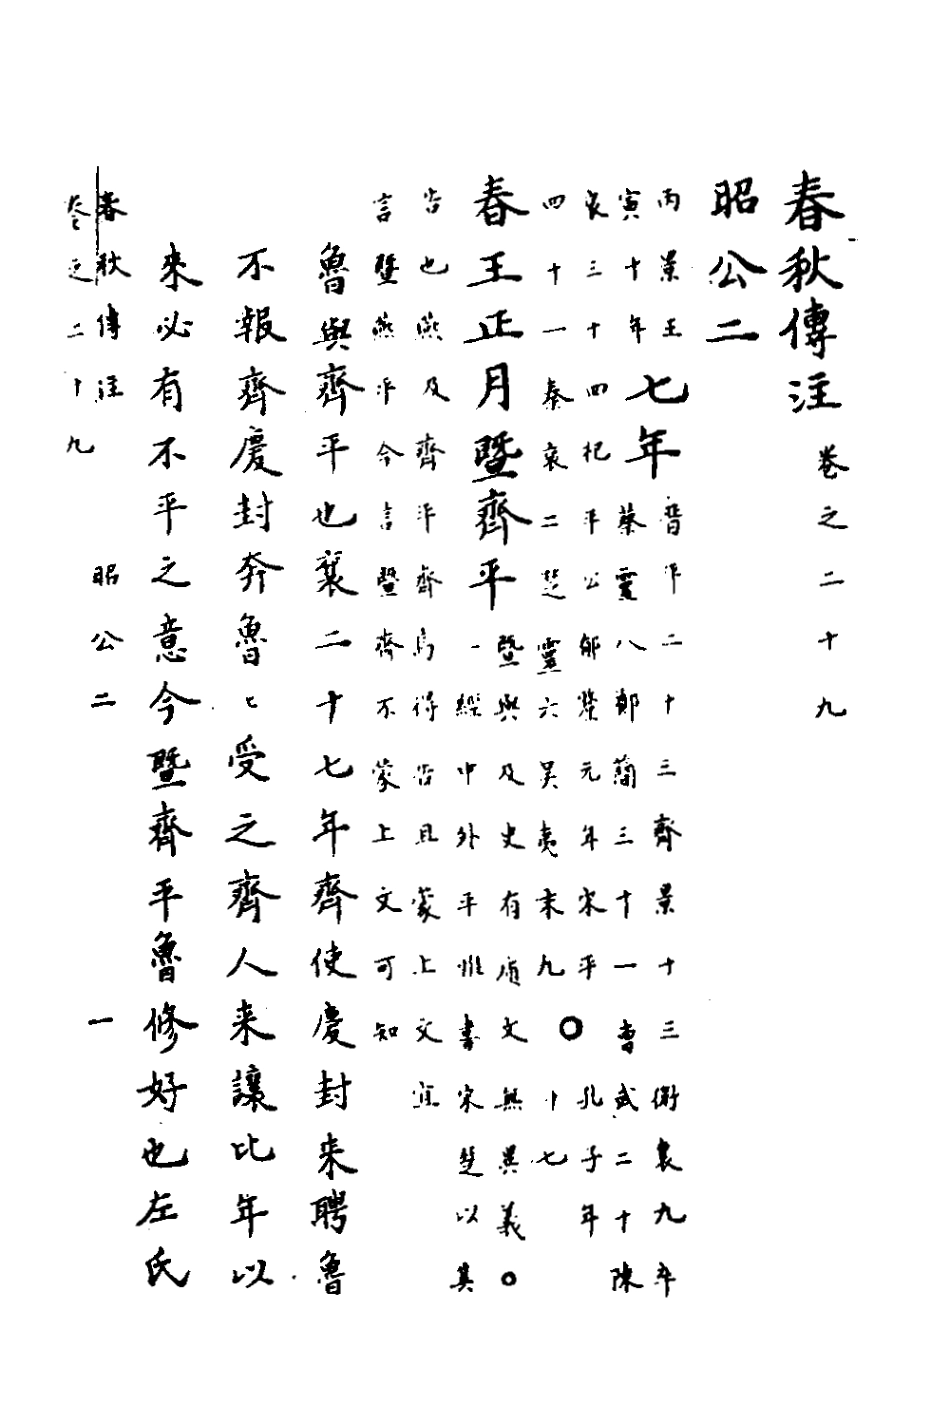 春秋傳注 卷之二十九
昭公二
丙寅 景王十年 七年 晋平二十三齊景十三衛襄九卒
蔡靈八鄭簡三十一曹武二十陳
哀三十四杞平公郁釐元年宋平
四十一秦哀二楚靈六吳夷末九○孔子年十七
春王正月暨齊平 暨與及史有質文無異義○
一經中外平惟書宋楚以其
告也燕及齊平齊爲得告且蒙上文宜
言暨燕平今言暨齊不蒙上文可知
魯與齊平也襄二十七年齊使慶封来聘魯
不報齊慶封奔魯〻受之齊人来讓比年以
來必有不平之意今暨齊平魯修好也左氏
春秋傳注 卷之二十九 昭公二 一